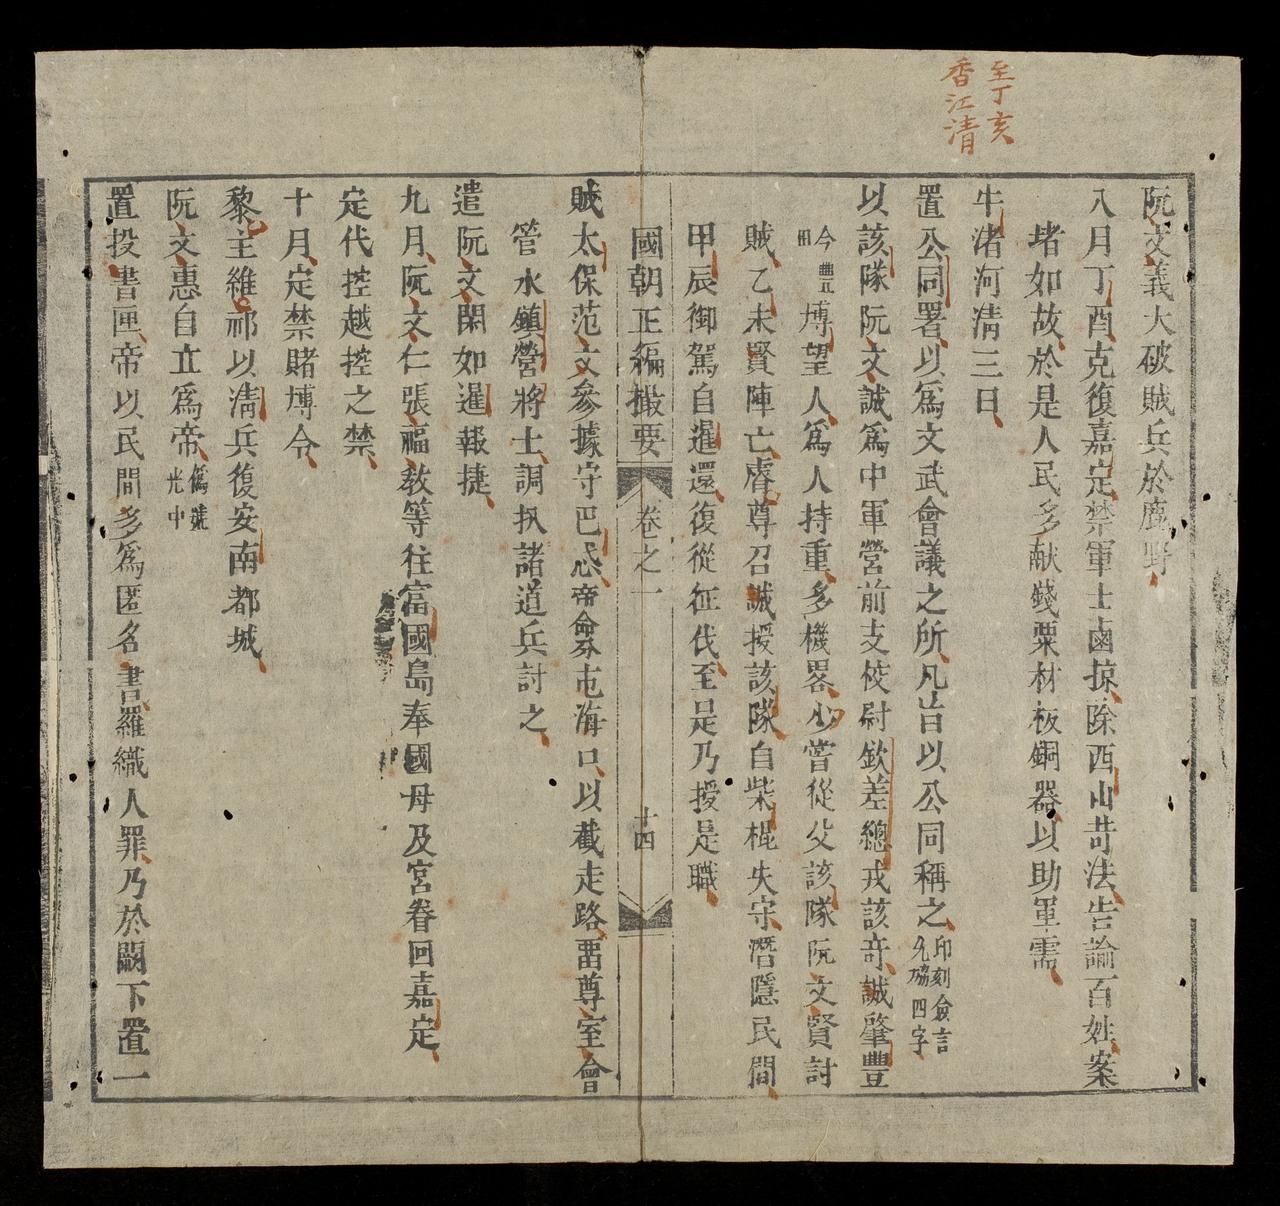 至丁亥
香江清
阮文義大破賊兵於鹿野
八月丁酉克復嘉定禁軍士鹵掠除西山苛法告諭百姓案
堵如故於是人民多献錢粟材板銅器以助軍需
牛渚河清三日
置公同署以爲文武會議之所凡旨以公同稱之印刻僉言允協四字
以該隊阮文誠爲中軍營前支校尉欽差總戎該奇誠肇豐
今豐田博望人爲人持重多機畧少嘗從父該隊阮文賢討
賊乙未賢陣亡睿尊召誠授該隊自柴棍失守潛隱民間
甲辰御駕自暹還復從征伐至是乃授是職
國朝正編撮要 卷之一 十四
賊太保范文參據守巴忒帝命分屯海口以截走路畱尊室會
管水鎮營將士調扒諸道兵討之
遣阮文閑如暹報捷
九月阮文仁張福教等往富國島奉國母及宮眷回嘉定
定代控越控之禁
十月定禁賭博令
黎主維祁以清兵復安南都城
阮文惠自立爲帝僞號光中
置投書匣帝以民間多爲匿名書羅織人罪乃於闕下置一